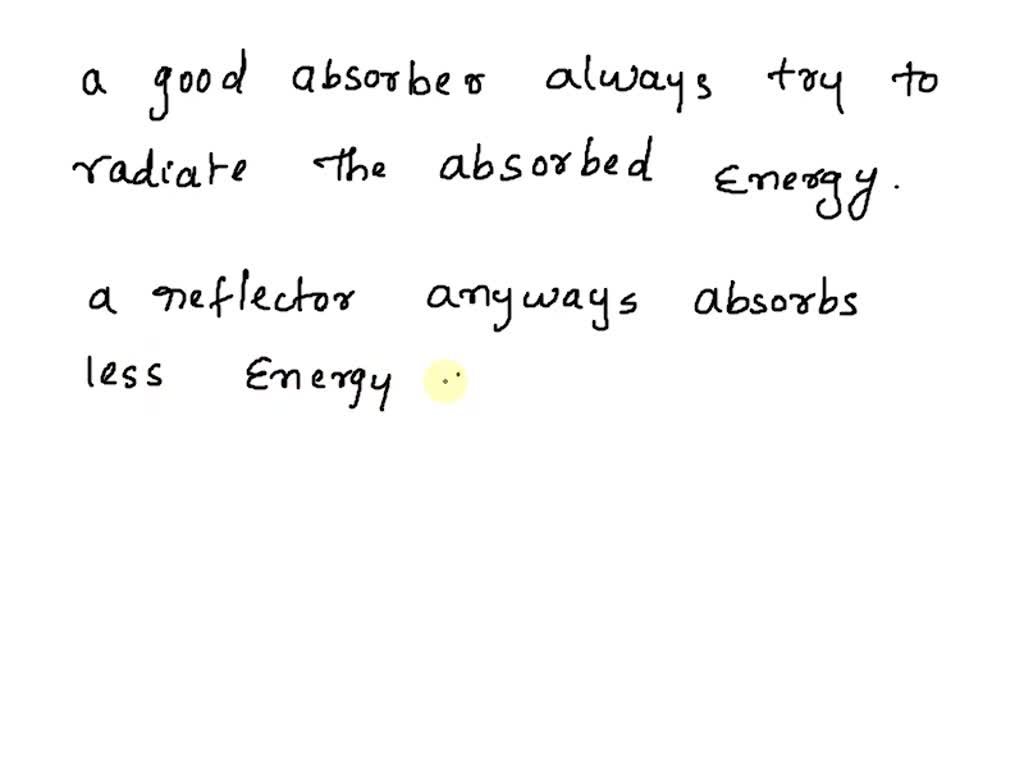 a good absorber always try to
radiate the absorbed Energy.
a reflector anyways absorbs
less Energy